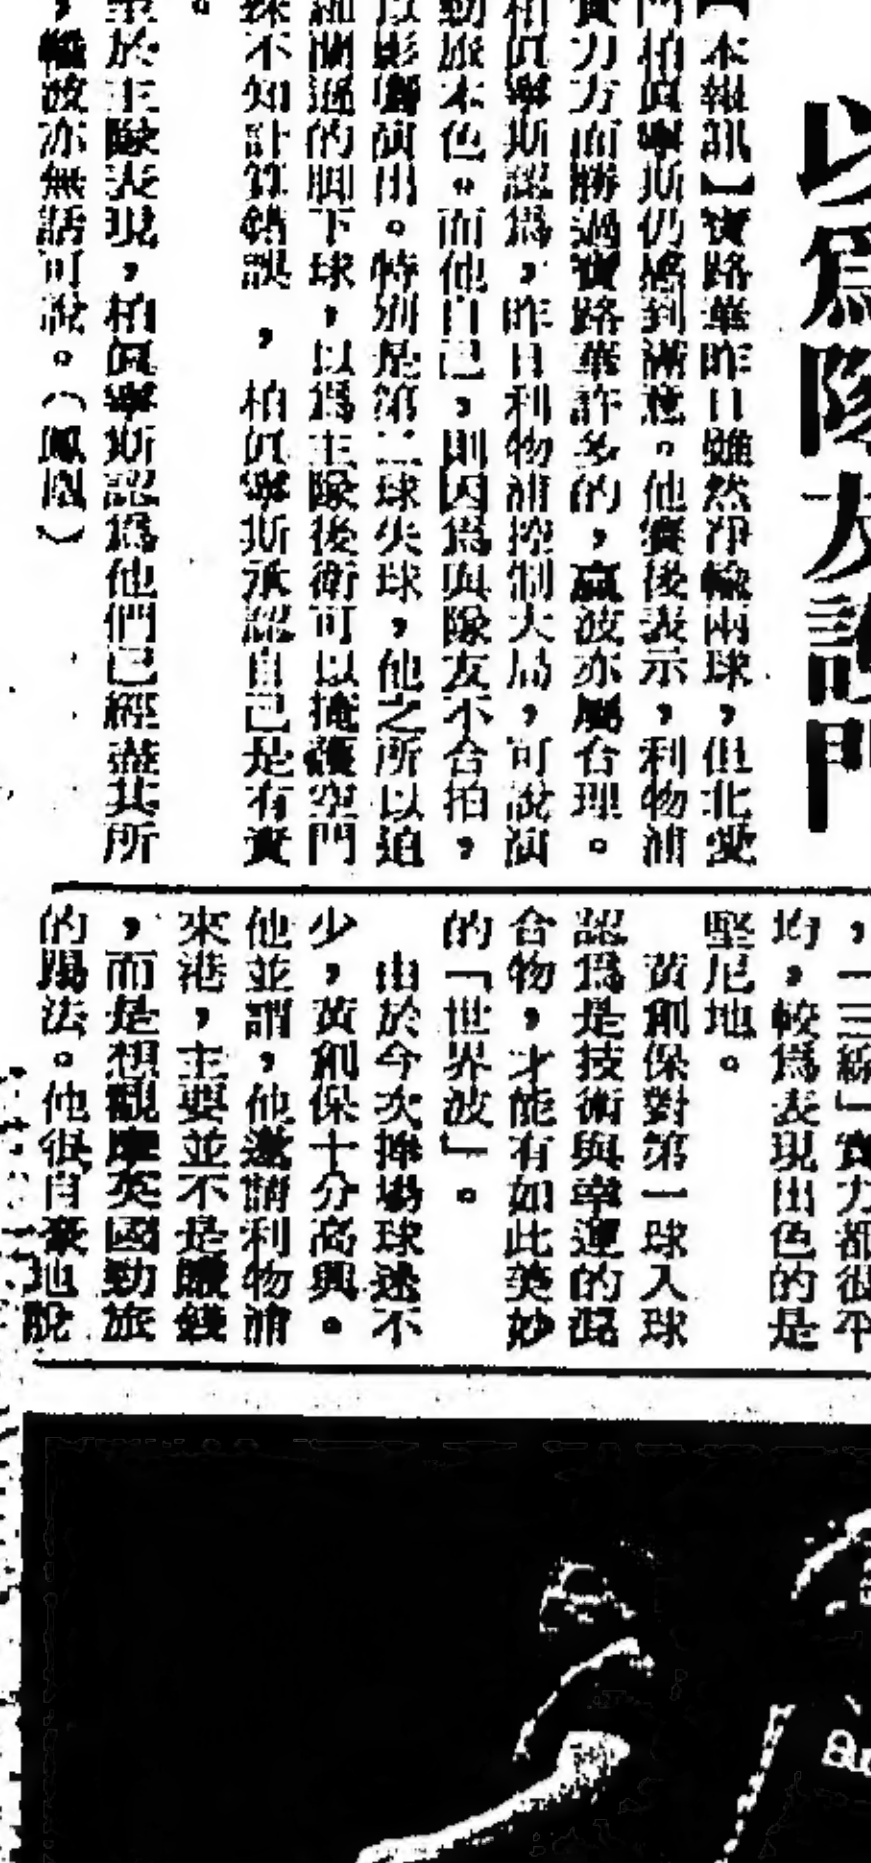 以為隊友護門
【本報訊】寶路華昨日雖然淨輸兩球，但北愛
門柏真寧斯仍感到滿意。他賽後表示，利物浦
實力方面勝過寶路華許多的，贏波亦屬合理。
柏真寧斯認為，昨日利物浦控制大局，可說演
勁旅本色。而他自己，則因為與隊友不合拍，
以影響演出。特別是第二球失球，他之所以迫
細關遜的腳下球，以為主隊後衛可以掩護空門
殊不知計算錯誤，柏真寧斯承認自己是有責
。
至於主隊表現，柏真寧斯認為他們已經盡其所
，輸波亦無話可說。（鳳凰）
，「三線」實力都很平
均，較為表現出色的是
堅尼地。
黃創保對第一球入球
認為是技術與幸運的混
合物，才能有如此美妙
的「世界波」。
由於今次捧場球迷不
少，黃創保十分高興。
他並謂，他邀請利物浦
來港，主要並不是賺錢
，而是想觀摩英國勁旅
的踢法。他很自豪地說